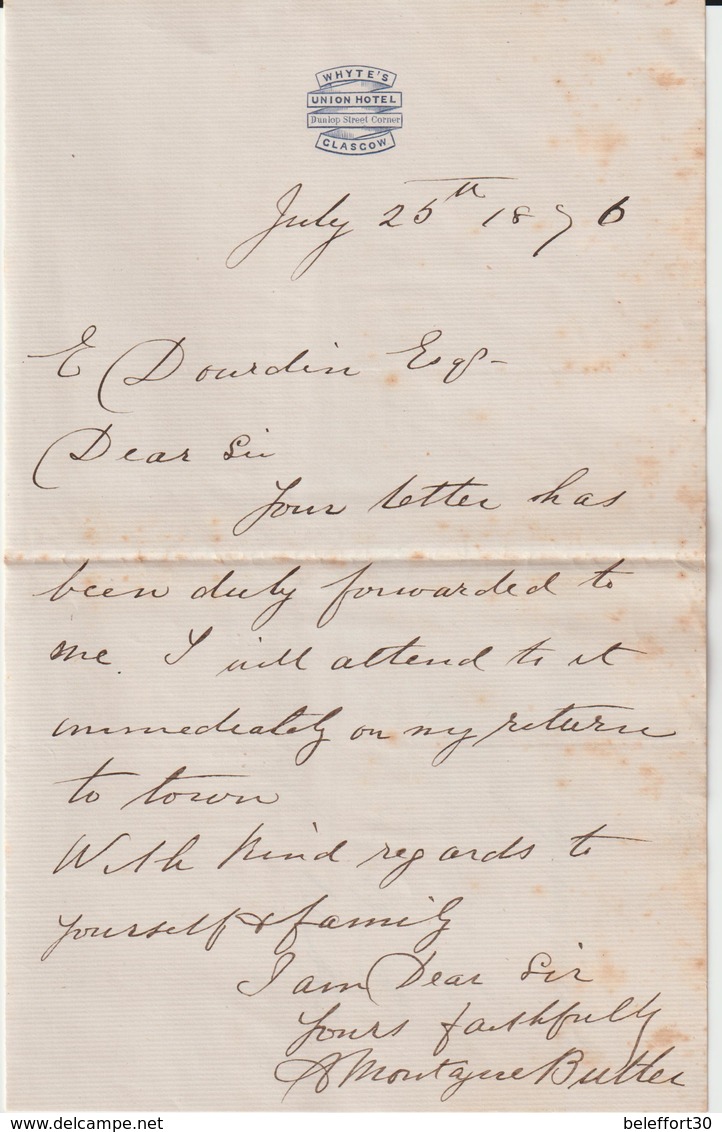 WHYTE'S
UNION HOTEL
Dunlop Street Corner
GLASGOW
July 25th 1876
E Dourdin Esqr
Dear Sir
Your letter has
been duly forwarded to
me. I will attend to it
immediately on my return
to town
With kind regards to
yourself & family
I am Dear Sir
Yours faithfully
A Montague Butler
beleffort30